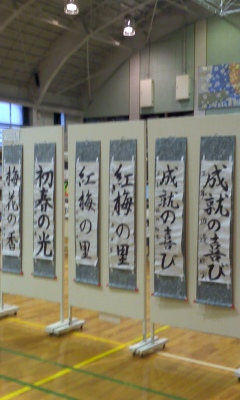 成就の喜び
成就の喜び
紅梅の里
紅梅の里
初春の光
梅花の香